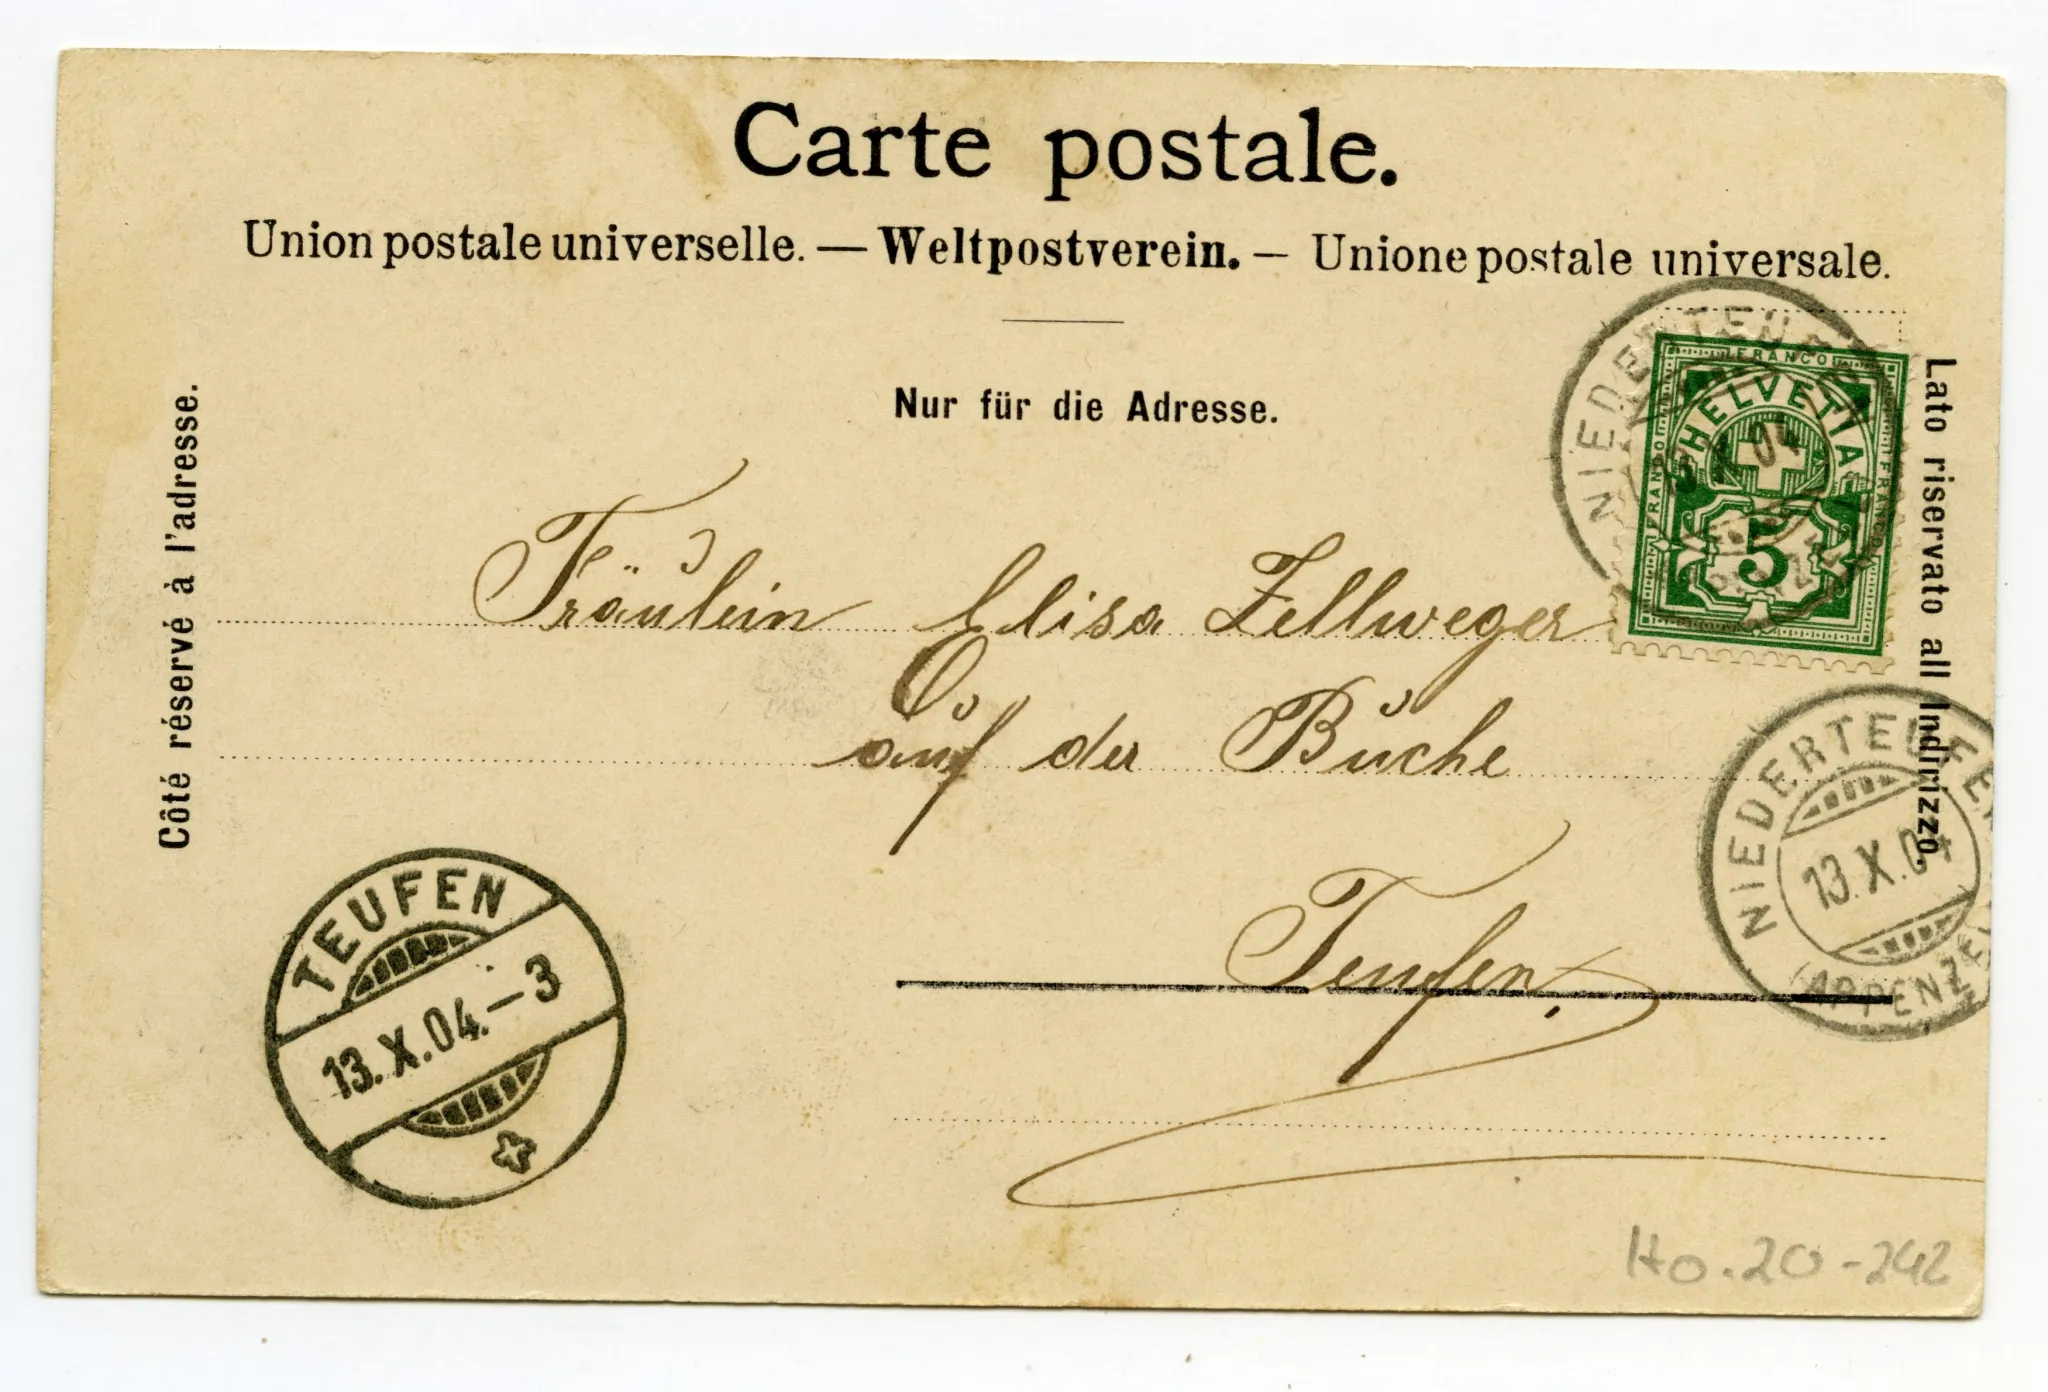 Carte postale.
Union postale universelle. — Weltpostverein. — Unione postale universale.
Nur für die Adresse.
Côté réservé à l'adresse.
Lato riservato all Indirizzo.
FRANCO
FRANCO
FRANCO
HELVETIA
5
Fräulein Elisa Zellweger
auf der Büche
Teufen.
NIEDERTEUFEN
13.X.04
(APPENZE
TEUFEN
13.X.04.-3
Ho.20-242